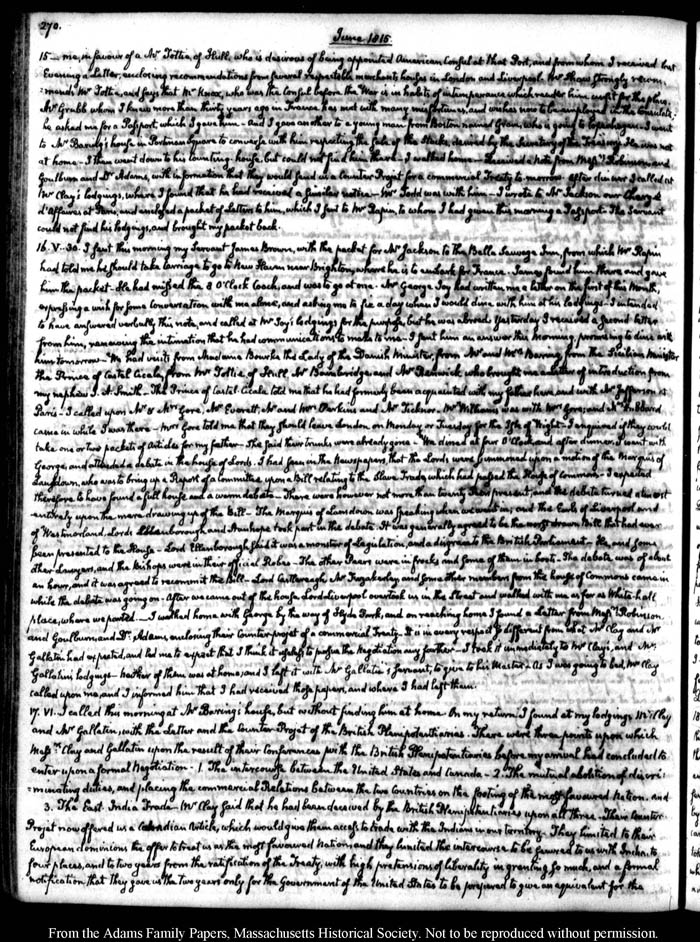 270.
June 1815.
15— me, in favour of a Mr. Tottie, of Hull, who is desirous of being appointed American Consul at that Port, and from whom I received last
Evening a Letter, enclosing recommendations from several respectable merchants houses in London and Liverpool. Mr. Shaw strongly recom-
-mends Mr. Tottie, and says that Mr. Knox, who was the Consul before the War is in habits of intemperance which render him unfit for the place.
Mr. Grubb whom I knew more than thirty years ago in France has met with many misfortunes, and wishes now to be employed in the Consulate.
he asked me for a Passport, which I gave him. And I gave another to a young man from Boston named Grant, who is going to Copenhagen. I went
to Mr. Baring's house in Portman Square to converse with him respecting the sale of the Stocks, desired by the Secretary of the Treasury. He was not
at home— I then went down to his counting-house, but could not find him there. I walked home— Received a note from Messrs. Robinson and
Goulburn and Dr. Adams, with information that they would send us a Counter Projet for a commercial Treaty to-morrow. After dinner I called at
Mr. Clay's lodgings, where I found that he had received a similar notice. Mr. Todd was with him— I wrote to Mr. Jackson our Chargé
d'Affaires at Paris, and enclosed a packet of Letters to him, which I sent to Mr. Rapin, to whom I had given this morning a Passport. The Servant
could not find his lodgings, and brought my packet back.
16. V. 30. I sent this morning my Servant James Brown, with the packet for Mr. Jackson to the Belle Sauvage Inn, from which Mr. Rapin
had told me he should take carriage to go to New Haven near Brighton, where he is to embark for France. James found him there and gave
him the packet. He had missed the 8 O'Clock Coach, and was to go at one. Mr. George Joy had written me a letter on the first of this Month,
expressing a wish for some conversation with me alone, and asking me to fix a day when I would dine with him at his lodgings— I intended
to have answered verbally this note, and called at Mr. Joy's lodgings for the purpose, but he was abroad. Yesterday I received a second letter
from him, renewing the intimation that he had communications to make to me. I sent him an answer this Morning, promising to dine with
him tomorrow— We had visits from Madame Bourke the Lady of the Danish Minister, from Mr. and Mrs. Baring, from the Sicilian Minister
the Prince of Castel Cicala, from Mr. Tottie of Hull, Mr. Bainbridge, and Mr. Renwick, who brought me a letter of introduction from
my nephew J. A. Smith— The Prince of Castel-Cicala told me that he had formerly been acquainted with my father here, and with Mr. Jefferson at
Paris— I called upon Mr. & Mrs. Gore, Mr. Everett, Mr. and Mrs. Perkins and Mr. Ticknor. Mr. Williams was with Mrs. Gore; and Mr. Hubbard
came in while I was there— Mrs. Gore told me that they should leave London, on Monday or Tuesday for the Isle of Wight— I enquired if they could
take one or two packets of articles for my father— She said their trunks were already gone— We dined at four O'Clock, and after dinner I went with
George, and attended a debate in the house of Lords. I had seen in the Newspapers, that the Lords were summoned upon a motion of the Marquis of
Lansdown, who was to bring up a Report of a Committee upon a Bill relating to the Slave Trade, which had passed the House of Commons— I expected
therefore to have found a full house and a warm debate— There were however not more than twenty Peers present, and the debate turned almost
entirely upon the mere drawing up of the Bill— The Marquis of Lansdown was speaking when we went in; and the Earls of Liverpool and
of Westmorland, Lords Ellenborough, and Stanhope took part in the debate. It was generally agreed to be the worst drawn Bill that had ever
been presented to the House— Lord Ellenborough said it was a monster of Legislation, and a disgrace to the British Parliament. He, and some
other Lawyers, and the Bishops were in their official Robes— The other Peers were in frocks and some of them in boots. The debate was of about
an hour, and it was agreed to recommit the Bill— Lord Castlereagh, Mr. Fazakerley, and some other members from the house of Commons came in
while the debate was going on. After we came out of the house Lord Liverpool overtook us in the Street and walked with us as far as White-hall
place, where we parted— I walked home with George by the way of Hyde Park, and on reaching home I found a Letter from Messrs. Robinson
and Goulburn and Dr. Adams, enclosing their Counter-projet of a commercial Treaty. It is in every respect so different from what Mr. Clay and Mr.
Gallatin had expected, and led me to expect that I think it useless to pursue the Negotiation any further— I took it immediately to Mr. Clay's, and Mr.
Gallatin's lodgings— Neither of them was at home, and I left it with Mr. Gallatin's servant, to give to his Master— As I was going to bed, Mr. Clay
called upon me, and I informed him that I had received those papers, and where I had left them.
17. VI. I called this morning at Mr. Baring's house, but without finding him at home. On my return I found at my lodgings Mr. Clay
and Mr. Gallatin, with the Letter and the Counter-Projet of the British Plenipotentiaries. There were three points upon which
Messrs. Clay and Gallatin upon the result of their Conferences with the British Plenipotentiaries before my arrival had concluded to
enter upon a formal Negotiation. 1. The intercourse between the United States and Canada— 2. The mutual abolition of discri-
-minating duties, and placing the commercial Relations between the two Countries on the footing of the most favoured Nation. and
3. The East. India Trade— Mr. Clay said that he had been deceived by the British Plenipotentiaries upon all three. Their Counter-
Projet now offered us a Canadian Article, which would give them access to trade with the Indians in our territory. They limited to their
European dominions the offer to treat us as the most favoured Nation, and they limited the intercourse to be secured to us with India, to
four places, and to two years from the ratification of the Treaty, with high pretensions of liberality in granting so much, and a formal
notification that they gave us the two years only for the Government of the United States to be prepared to give an equivalent for the
From the Adams Family Papers, Massachusetts Historical Society. Not to be reproduced without permission.